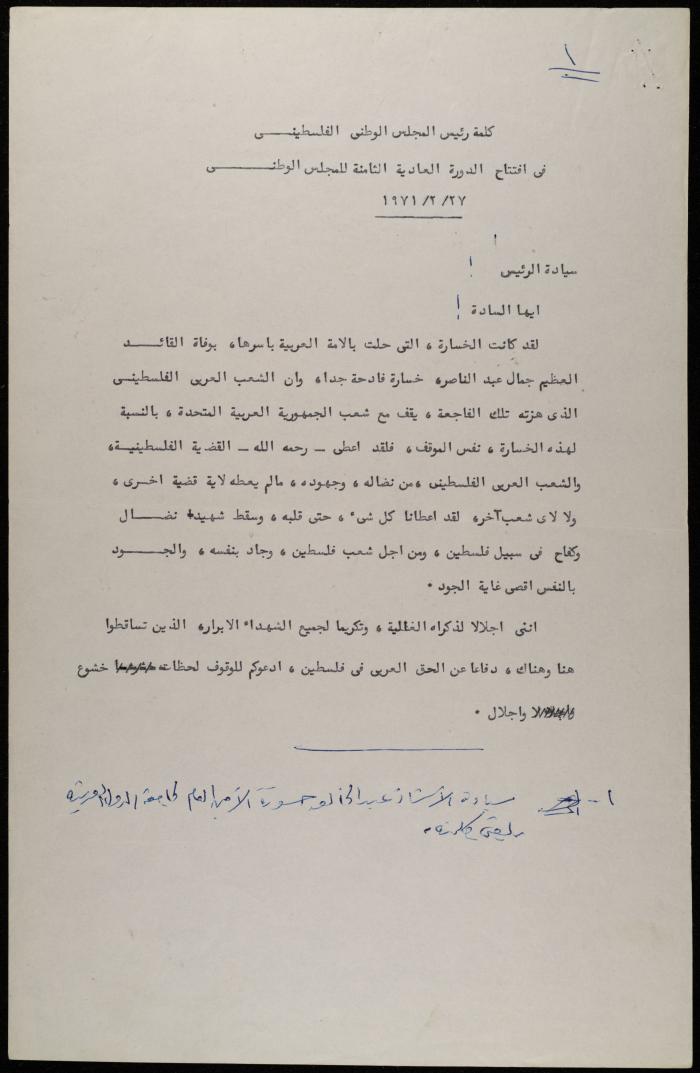 ١
كلمة رئيس المجلس الوطنى الفلسطينـــى
فى افتتاح الدورة العادية الثامنة للمجلس الوطنـــــــى
٢٧/ ٢/ ١٩٧١
سيادة الرئيس !
ايها السادة !
لقد كانت الخسارة ، التى حلت بالامة العربية باسرها، بوفاة القائــــد
العظيم جمال عبد الناصر، خسارة فادحة جدا، وان الشعب العربى الفلسطينـى
الذى هزته تلك الفاجعة ، يقف مع شعب الجمهورية العربية المتحدة ، بالنسبة
لهذه الخسارة ، نفس الموقف ، فلقد اعطى ـ رحمه الله ـ القضية الفلسطينيـة،
والشعب العربى الفلسطينى ،من نضاله ، وجهوده، مالم يعطه لاية قضية اخرى ،
ولا لاى شعب آخر، لقد اعطانا كل شىء ، حتى قلبه ، وسقط شهيد نضـــال
وكفاح فى سبيل فلسطين ، ومن اجل شعب فلسطين ، وجاد بنفسه ، والجـــود
بالنفس اقصى غاية الجود .
اننى اجلالا لذكراه الغالية ، وتكريما لجميع الشهداء الابرار، الذين تساقطوا
هنا وهناك ، دفاعا عن الحق العربى فى فلسطين ، ادعوكم للوقوف لحظات خشوع
واجلال .
١ - سيادة الأستاذ عبد الخالق حسونة الأمين العام لجامعة الدول العربية
يلقي كلمته .